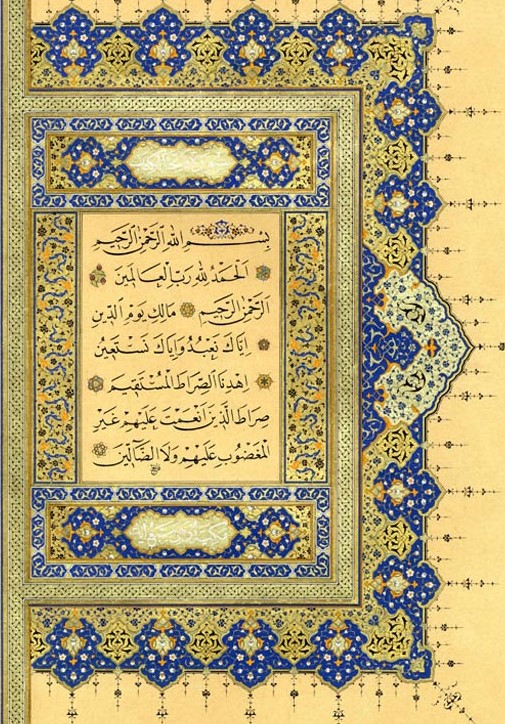 بِسْمِ اللهِ الرَّحْمٰنِ الرَّحِيمِ
اَلْحَمْدُ لِلّٰهِ رَبِّ الْعَالَمِينَ
اَلرَّحْمٰنِ الرَّحِيمِ مَالِكِ يَوْمِ الدِّينِ
اِيَّاكَ نَعْبُدُ وَاِيَّاكَ نَسْتَعِينُ
اِهْدِنَا الصِّرَاطَ الْمُسْتَقِيمَ
صِرَاطَ الَّذِينَ اَنْعَمْتَ عَلَيْهِمْ غَيْرِ
الْمَغْضُوبِ عَلَيْهِمْ وَلَا الضَّالِّينَ